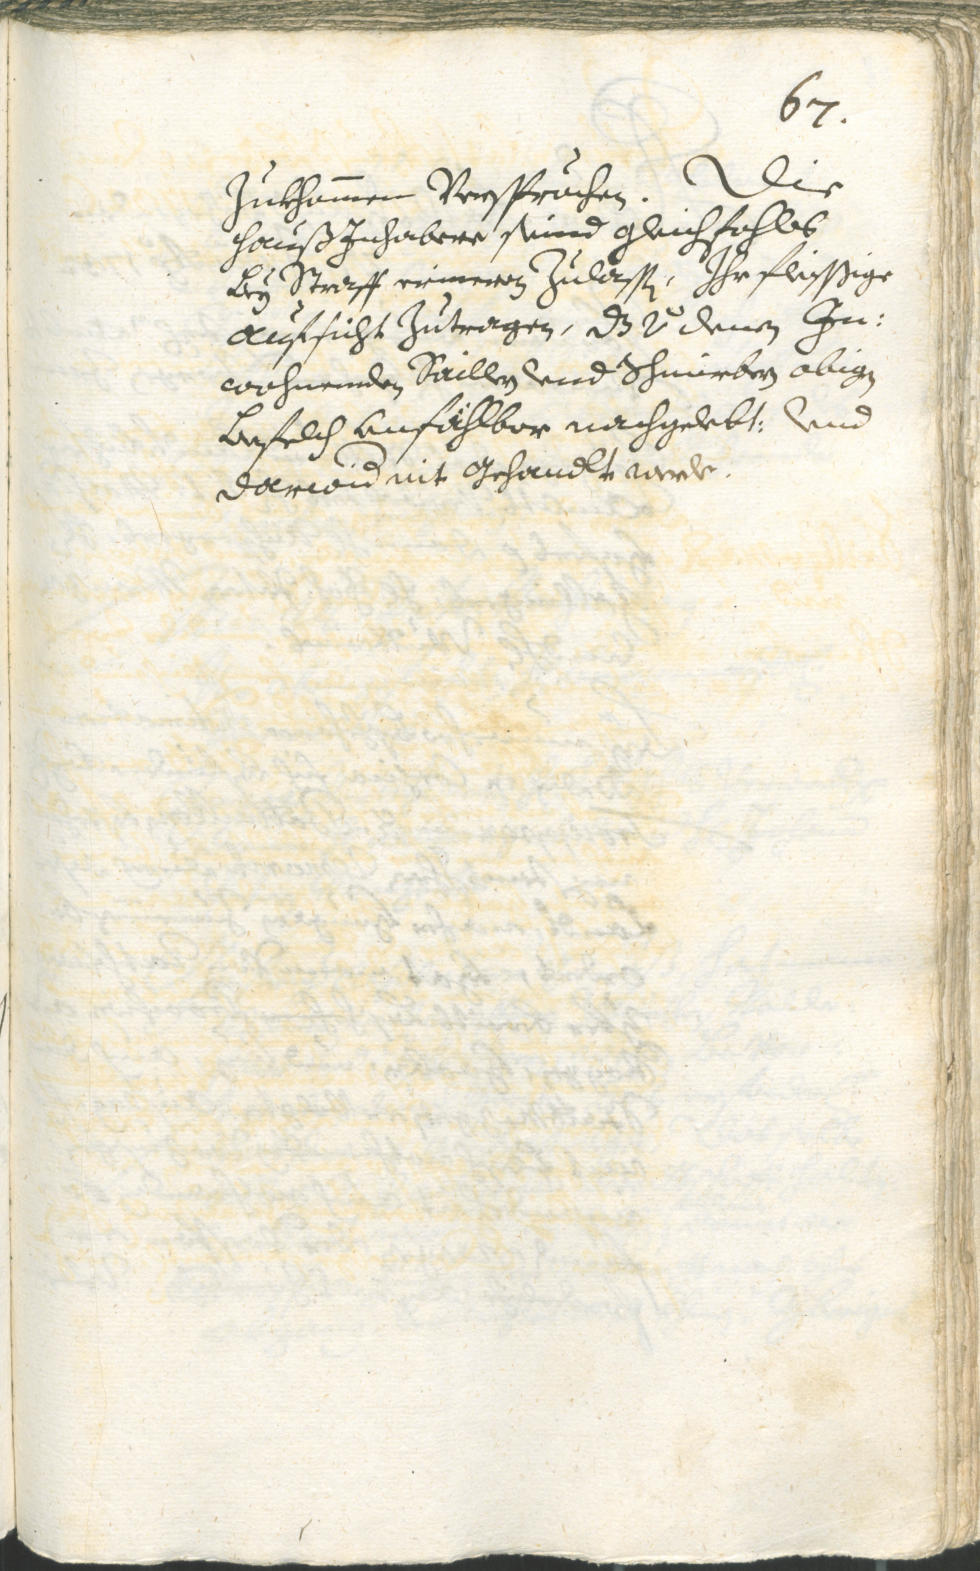 67.
Zukhom̄en Versprochen. Die
Hauß Inhabere seind gleichfahls
bey Straff erinnern Zulassen, Ihr fleissige
aufsicht Zutragen, dz v denen In:
wohnenden Sailler vnd Schnierber obigen
befelch unfählbar nachgelebt: vnd
darwid nit gehandlt werde.